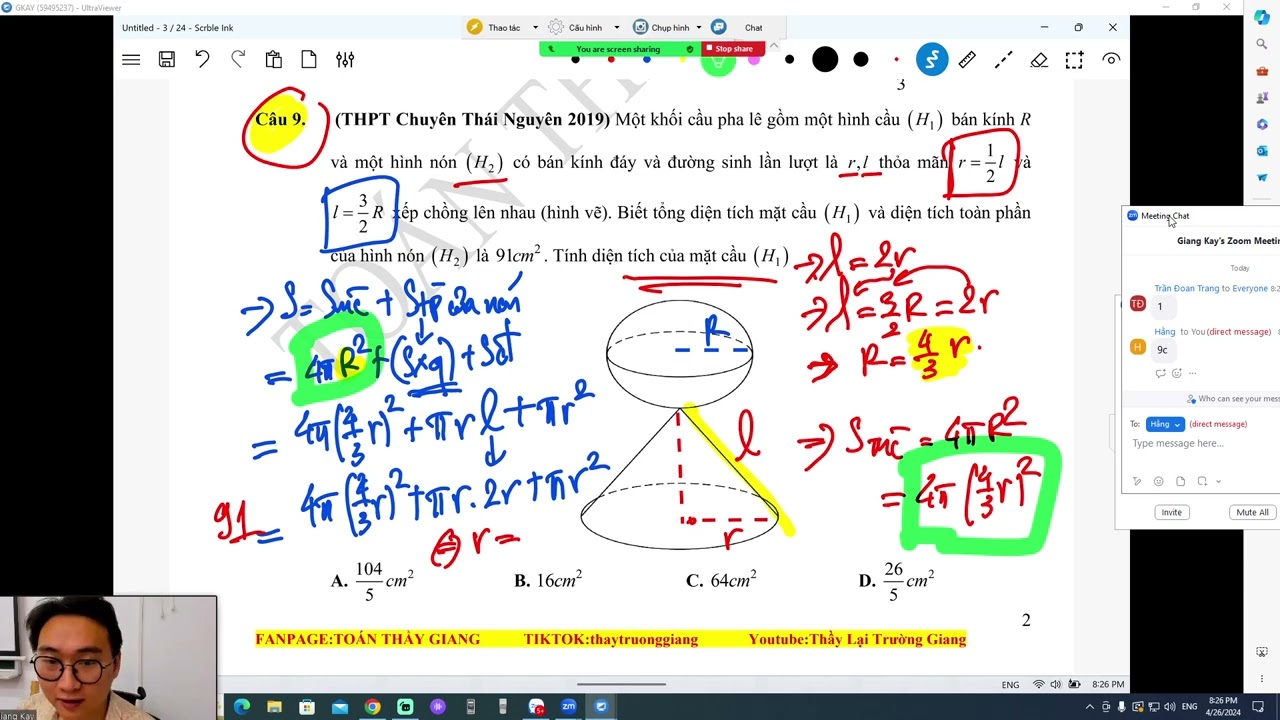 GKAY (59495237) - UltraViewer
Untitled - 3 / 24 - Scrble Ink
Thao tác
Cấu hình
Chụp hình
Chat
You are screen sharing
Stop share
3
TOÁN TH
Câu 9. (THPT Chuyên Thái Nguyên 2019) Một khối cầu pha lê gồm một hình cầu (H₁) bán kính R
và một hình nón (H₂) có bán kính đáy và đường sinh lần lượt là r,l thỏa mãn r = 1/2 l và
l = 3/2 R xếp chồng lên nhau (hình vẽ). Biết tổng diện tích mặt cầu (H₁) và diện tích toàn phần
của hình nón (H₂) là 91cm². Tính diện tích của mặt cầu (H₁)
=> l = 2r
=> S = Smc + Stp của nón
=> l = 3/2 R = 2r
= 4πR² + (Sxq) + Sđ
=> R = 4/3 r.
= 4π(4/3 r)² + πrl + πr²
=> Smc = 4πR²
91 = 4π(4/3 r)² + πr.2r + πr²
= 4π(4/3 r)²
⇔ r =
R
l
r
A. 104/5 cm² B. 16cm² C. 64cm² D. 26/5 cm²
2
FANPAGE:TOÁN THẦY GIANG TIKTOK:thaytruonggiang Youtube:Thầy Lại Trường Giang
Meeting Chat
Giang Kay's Zoom Meetin
Today
Trần Đoan Trang to Everyone 8:2
TĐ
1
Hằng to You (direct message)
H
9c
Who can see your mess
To: Hằng (direct message)
Type message here...
Invite
Mute All
ENG
8:26 PM
iang Kay
ENG
8:26 PM
4/26/2024